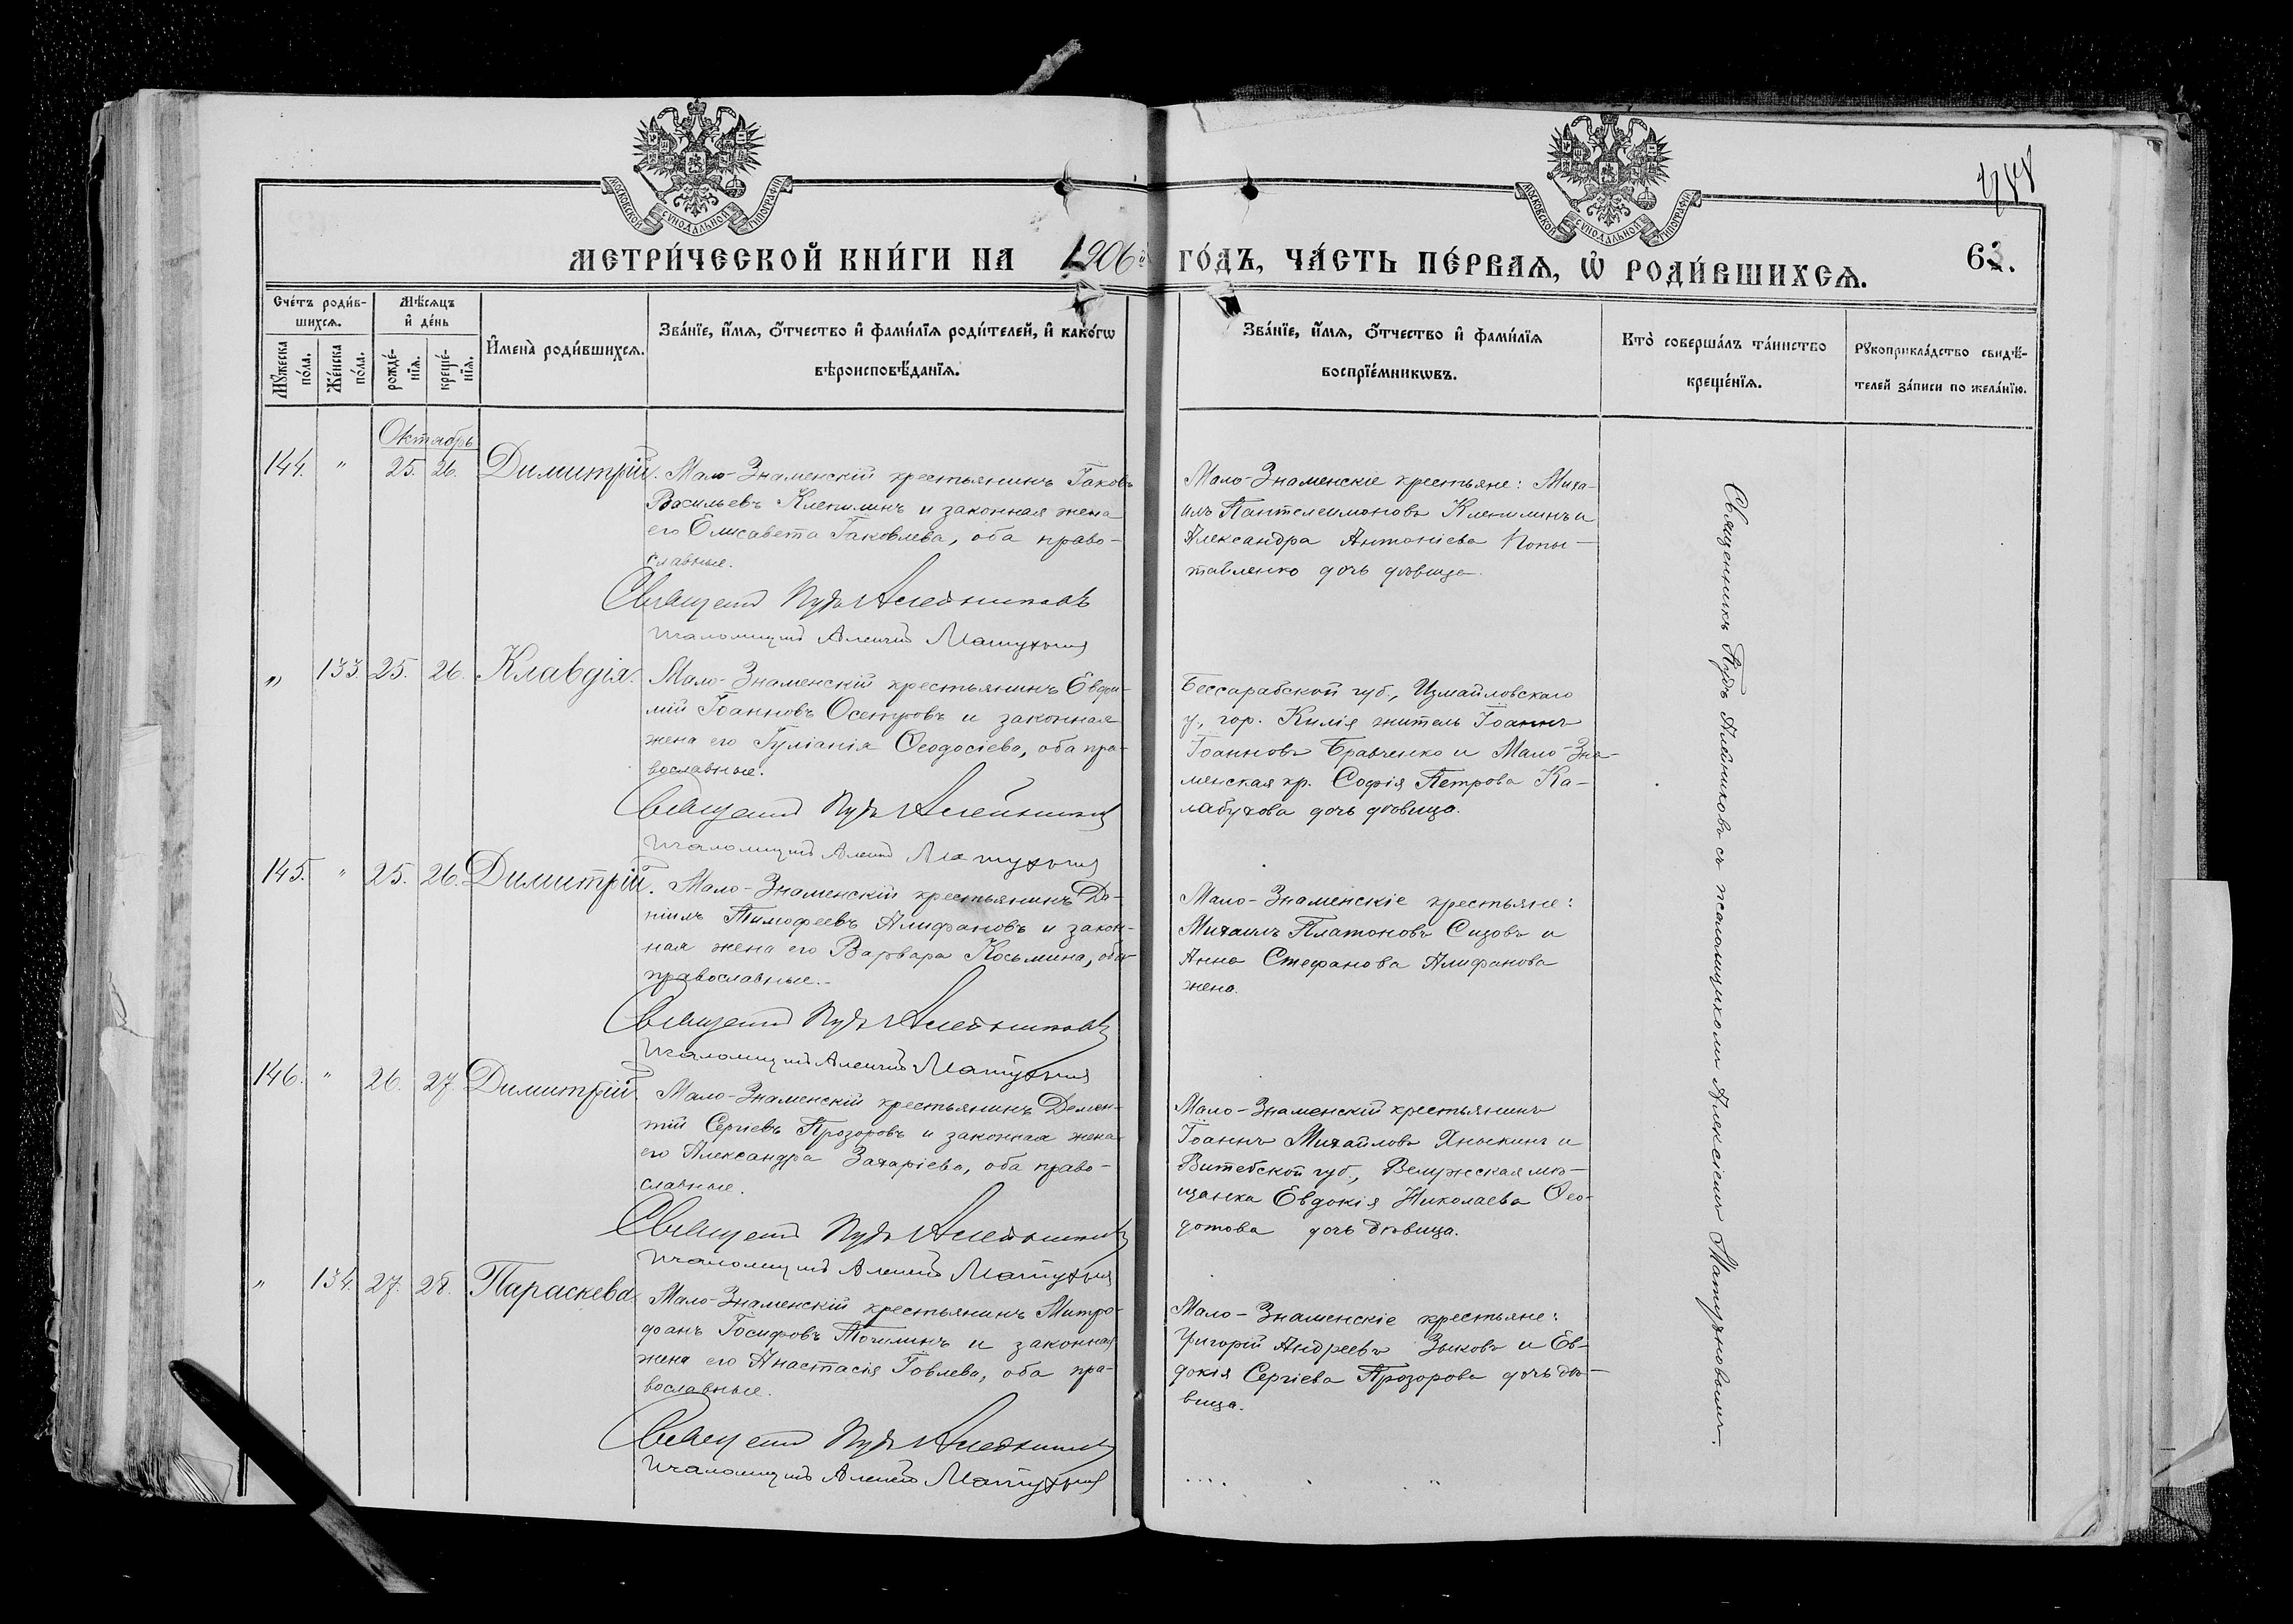 МОСКОВСКОЙ СѴНОДАЛЬНОЙ ТИПОГРАФІИ
МОСКОВСКОЙ СѴНОДАЛЬНОЙ ТИПОГРАФІИ
МЕТРИ́ЧЕСКОЙ КНИ́ГИ НА 1906й ГО́ДЪ, ЧА́СТЬ ПЕ́РВАЯ, Ѡ҆ РОДИ́ВШИХСѦ. 63.
Сче́тъ роди́в-
шихсѧ.
Мѣ́сѧцъ
и҆ де́нь
Мꙋ́жеска по́ла.
Же́нска по́ла.
рожде́-
нїѧ.
креще́-
нїѧ.
И҆мена̀ роди́вшихсѧ.
Зва́нїе, и҆́мѧ, ѻ҆́тчество и҆ фами́лїѧ роди́телей, и҆ како́гѡ
вѣроисповѣ́данїѧ.
Зва́нїе, и҆́мѧ, ѻ҆́тчество и҆ фами́лїѧ
воспрїе́мникѡвъ.
Кто̀ соверша́лъ та́инство
креще́нїѧ.
Рꙋкоприкла́дство свидѣ́-
телей за́писи по жела́нїю.
Октябрь
144. " 25. 26. Димитрій.
Мало-Знаменскій крестьянинъ Іаковъ
Васильевъ Клепилинъ и законная жена
его Елисавета Іаковлева, оба право-
славные.
Священ Пудъ Алейниковъ
Псаломщикъ Алексій Матухнов
Мало-Знаменскіе крестьяне: Миха-
илъ Пантелеимоновъ Клепилинъ и
Александра Антоніева
дочь дѣвица.
" 133 25. 26. Клавдія.
Мало-Знаменскій крестьянинъ Евфи-
мій Іоанновъ Осетровъ и законная
жена его Іуліанія Ѳеодосіева, оба пра-
вославные.
Священ Пудъ Алейников
Псаломщикъ Алексій Матухнов
Бессарабской губ., Измайловскаго
у, гор. Килія житель Іоаннъ
Іоанновъ Бравченко и Мало-Зна-
менская кр. Софія Петрова Ка-
лабухова дочь дѣвица.
145. " 25. 26. Димитрій.
Мало-Знаменскій крестьянинъ Да-
ніилъ Тимофеевъ Алифановъ и закон-
ная жена его Варвара Косьмина, оба
православные.
Священ Пудъ Алейников
Псаломщикъ Алексій Матухнов
Мало-Знаменскіе крестьяне:
Михаилъ Платоновъ Сизовъ и
Анна Стефанова Алифанова
жена.
146. " 26. 27. Димитрій.
Мало-Знаменскій крестьянинъ Демен-
тій Сергіевъ Прозоровъ и законная жена
его Александра Захаріева, оба право-
славные.
Священ Пудъ Алейников
Псаломщикъ Алексій Матухнов
Мало-Знаменскій крестьянинъ
Іоаннъ Михайловъ и
Витебской губ., Велижская мѣ-
щанка Евдокія Николаева Ѳео-
дотова дочь дѣвица.
" 134. 27. 28. Параскева
Мало-Знаменскій крестьянинъ Митро-
фанъ Іосифовъ Точилинъ и законная
жена его Анастасія Іовлева, оба пра-
вославные.
Священ Пудъ Алейников
Псаломщикъ Алексій Матухнов
Мало-Знаменскіе крестьяне:
Григорій Андреевъ Зыковъ и Ев-
докія Сергіева Прозорова дочь дѣ-
вица.
Священникъ Пудъ Алейниковъ съ псаломщикомъ Алексіемъ Матухновымъ.